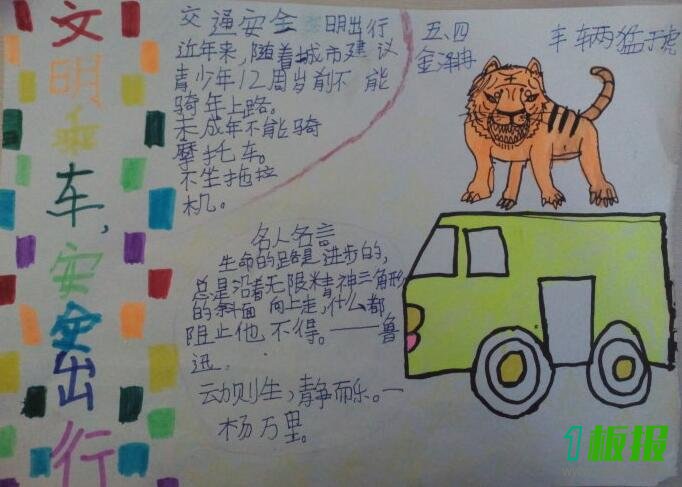 文明乘车,安全出行
交通安全 明出行
近年来,随着城市建议
青少年12周岁前不能
骑车上路。
未成年不能骑
摩托车。
不坐拖拉
机。
五、四
车辆猛于虎
名人名言
生命的路是进步的,
总是沿着无限精神三角形
的斜面向上走,什么都
阻止他不得。——鲁
迅.
动则生,静而乐。一
杨万里。
1板报